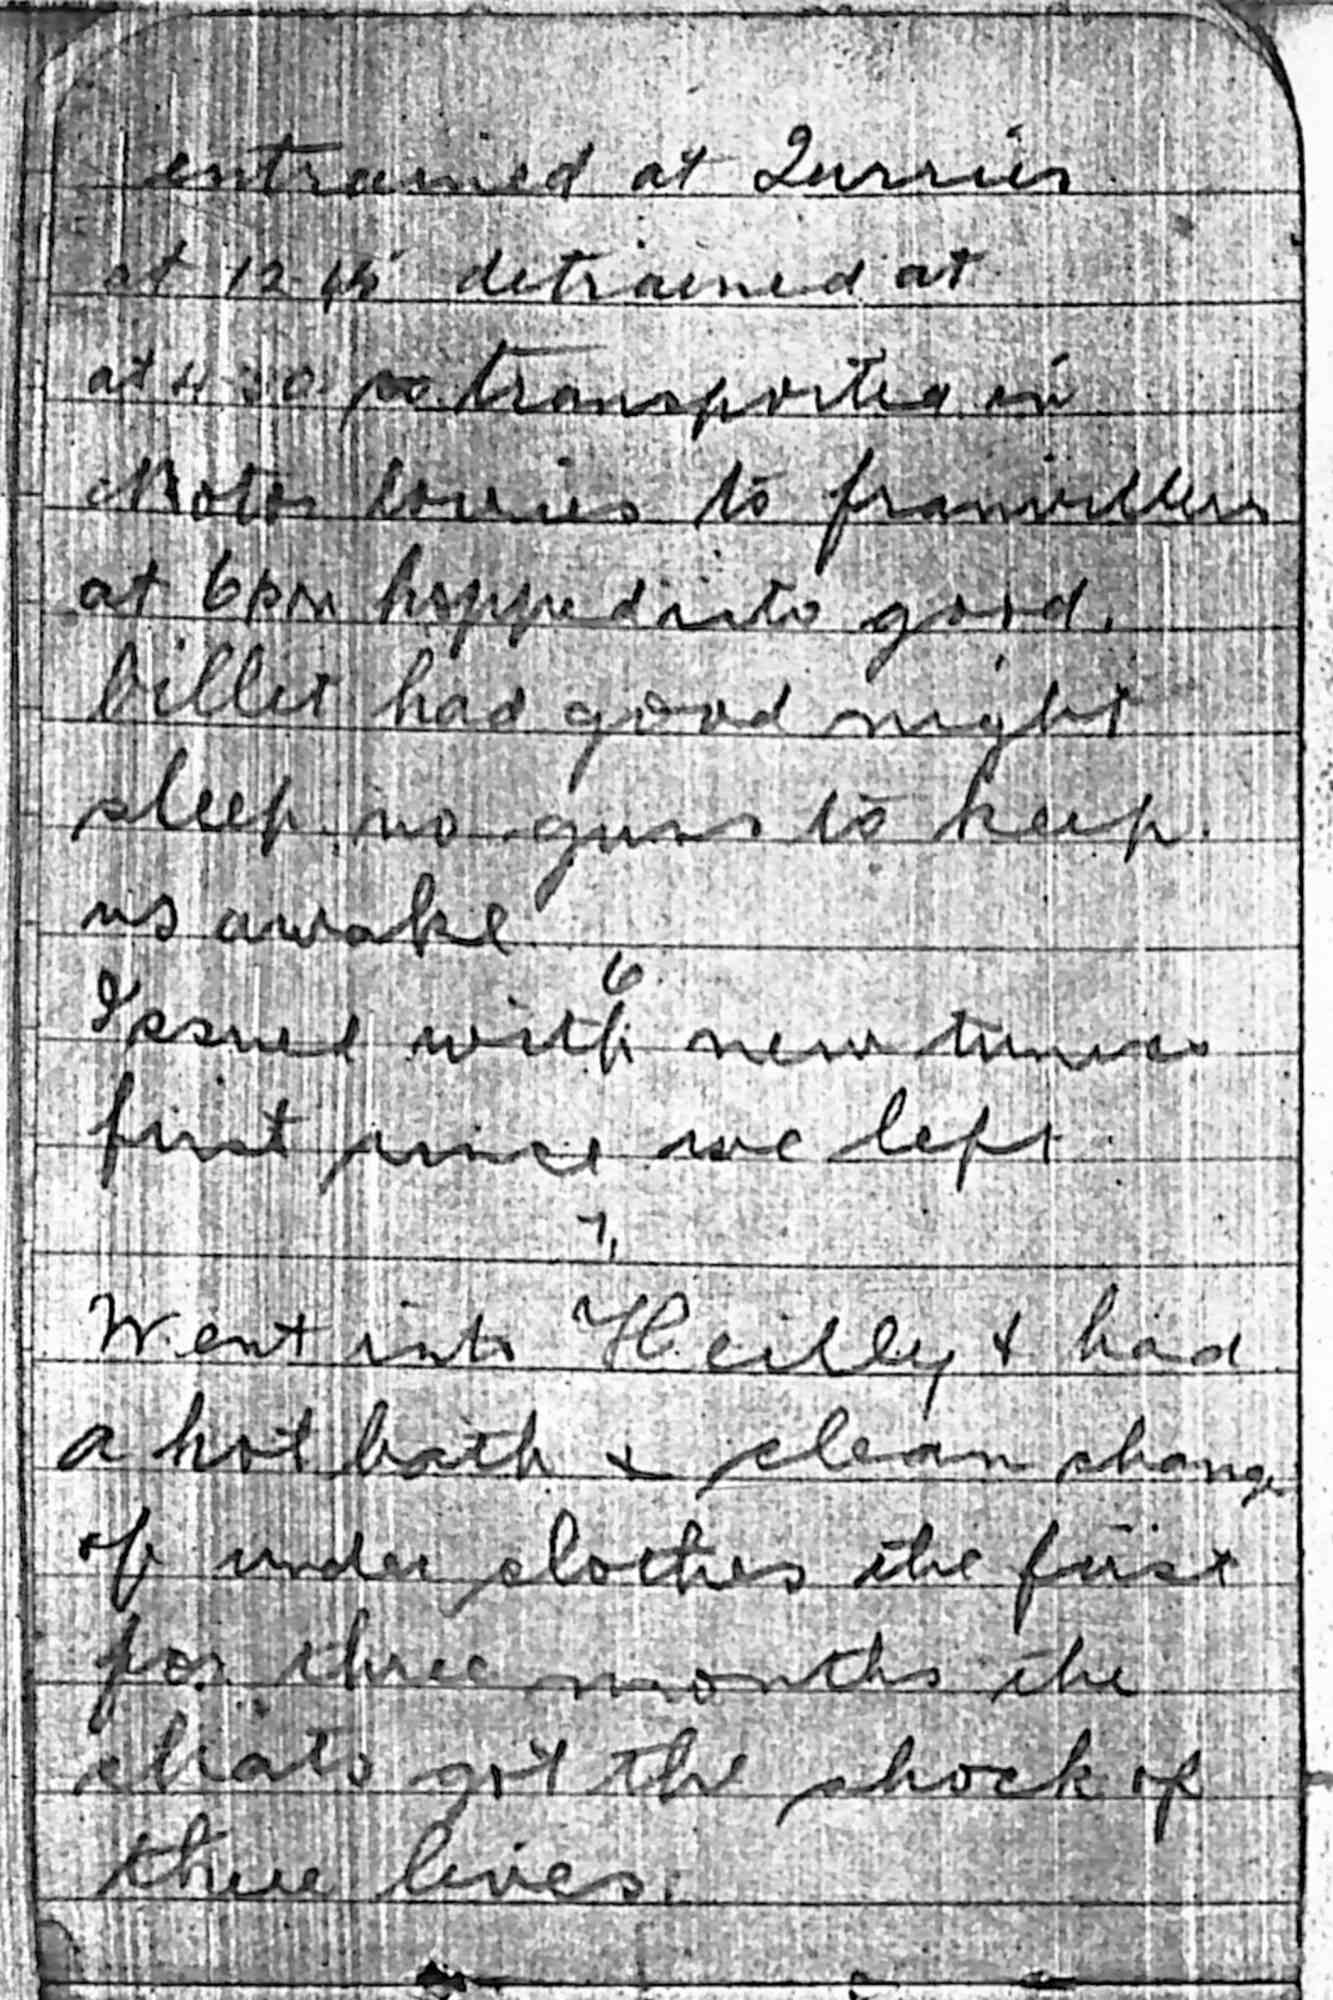 entrained at Qurries
at 12-45 detrained at
at 4-30 transported in
Motor lorries to franvillers
at 6pm hopped into good.
billet had good night
sleep no guns to keep.
us awake
6.
Issued with new tunics
first since we left.
7.
Went into Heilly & had
a hot bath & clean change
of under clothes the first
for three months the
chats got the shock of
there lives.